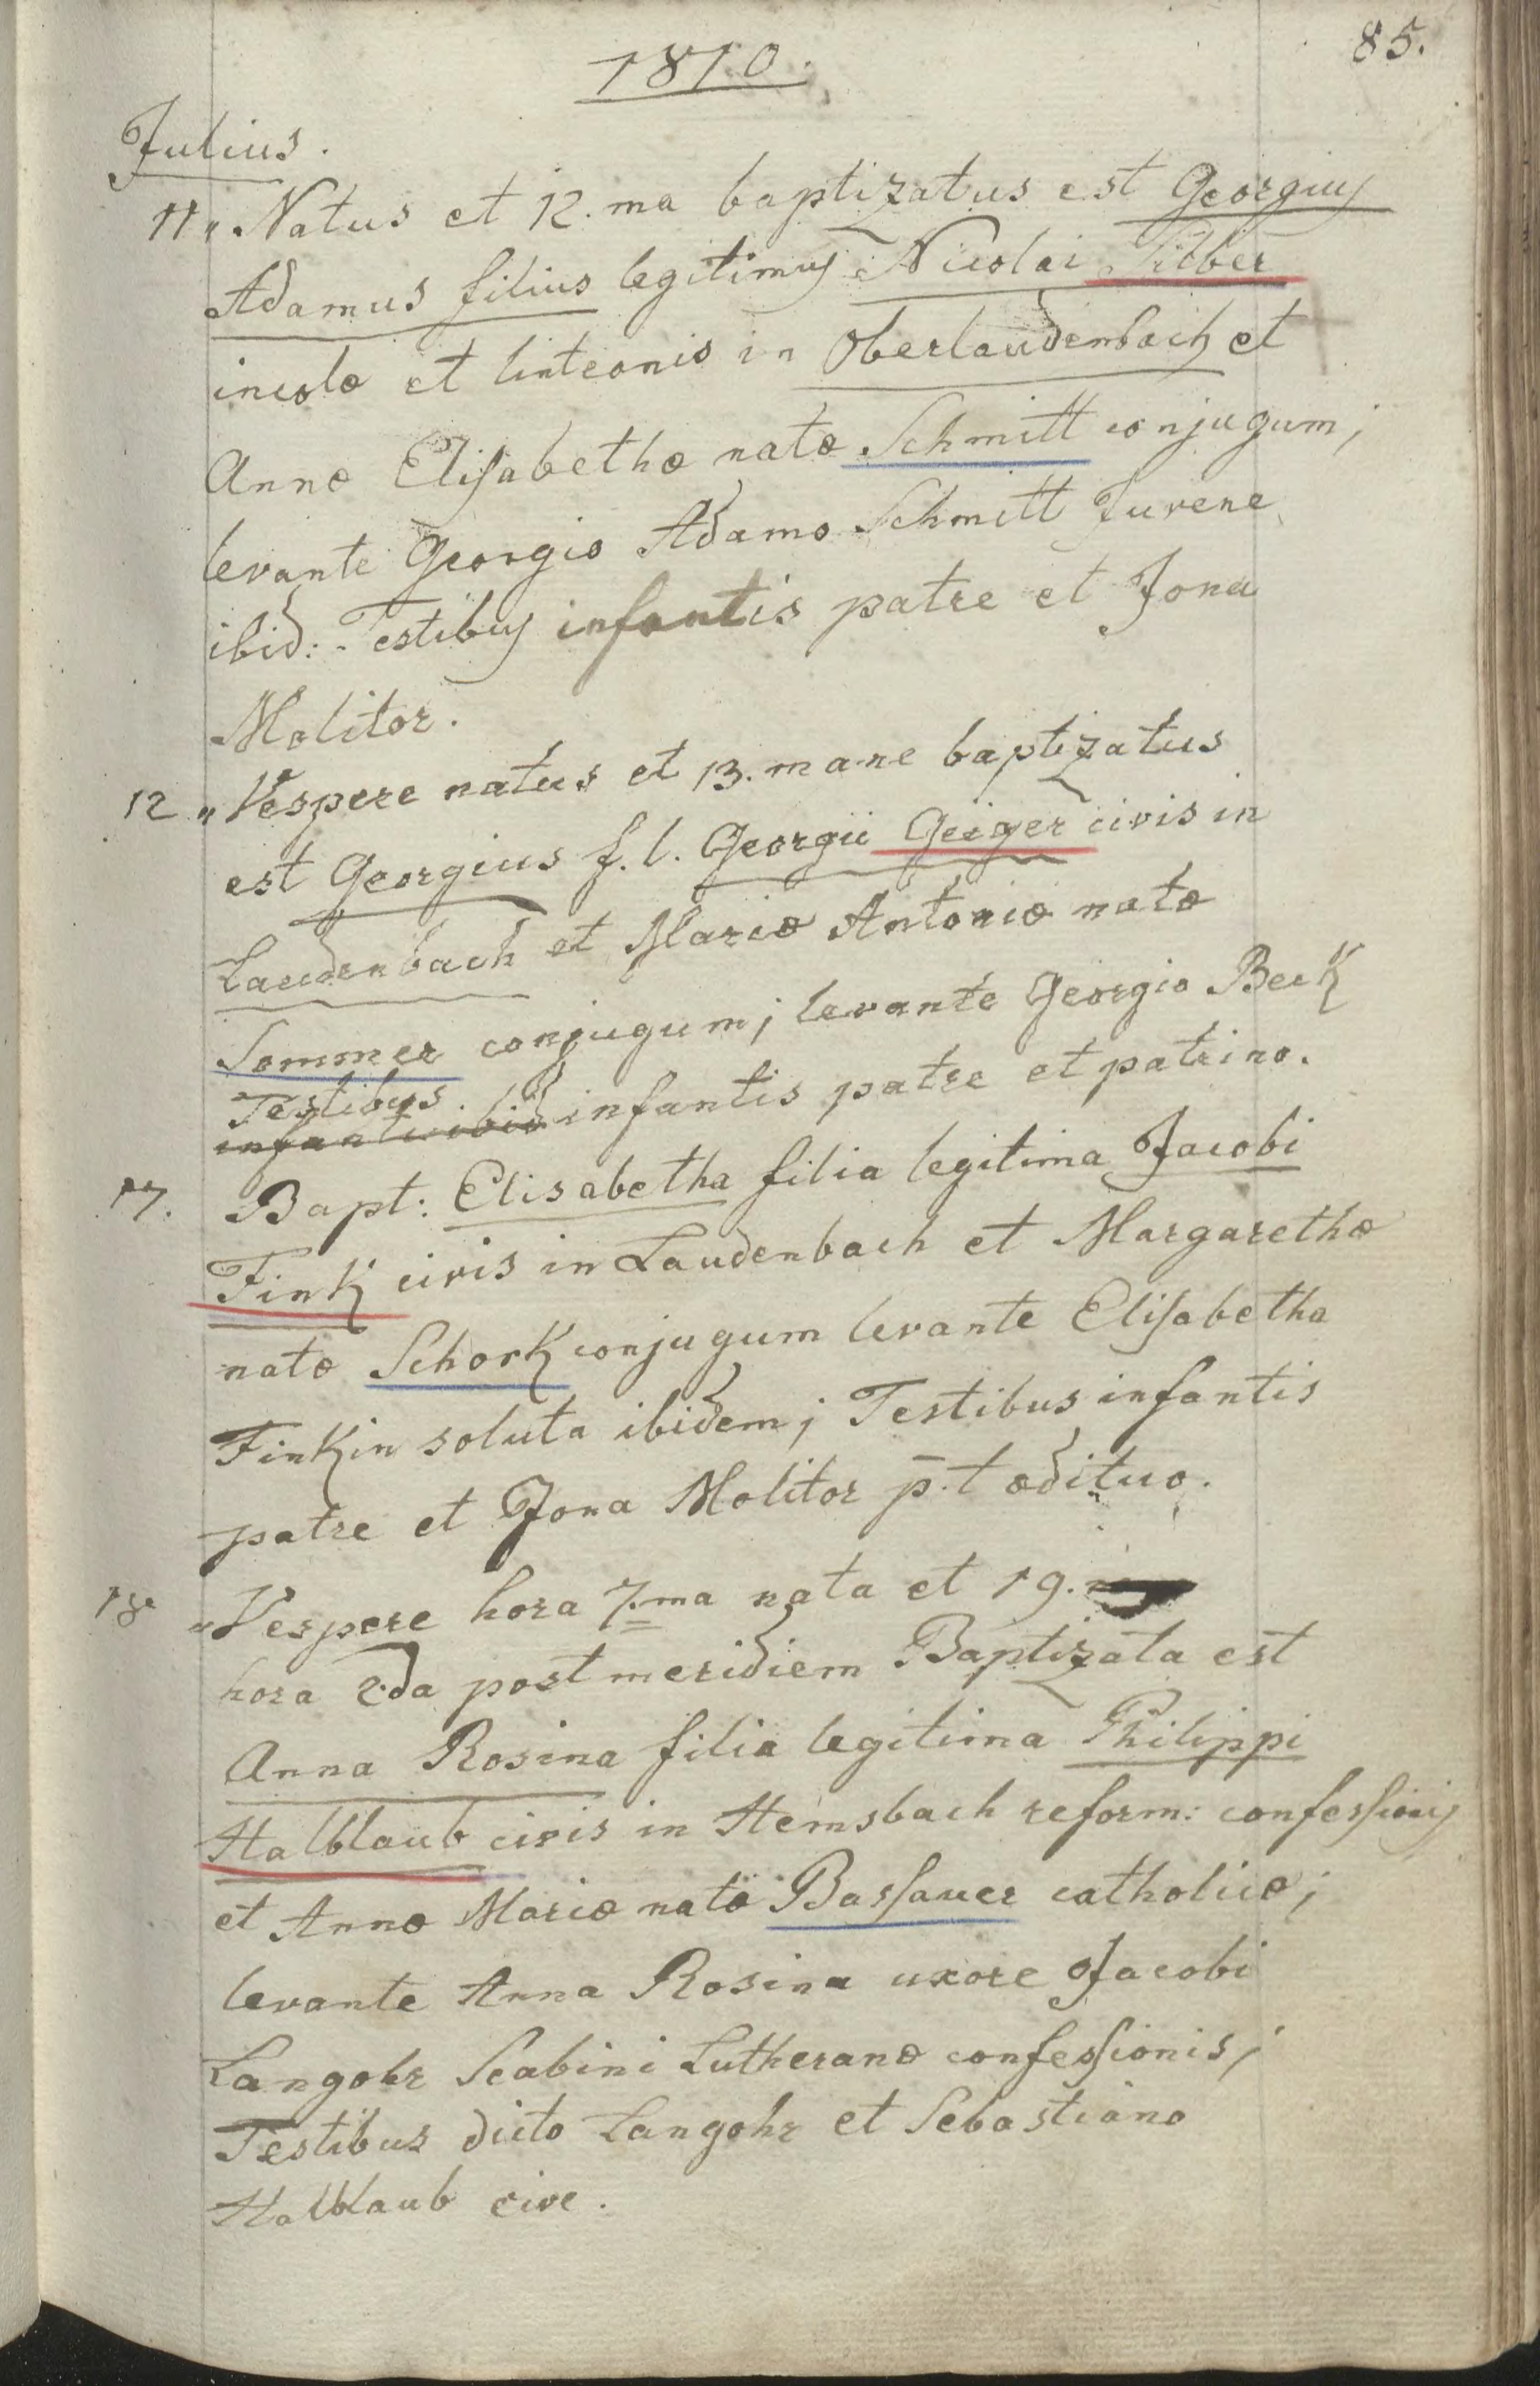 85.
1810.
Julius.
11 „ Natus et 12.ma baptizatus est Georgius
Adamus filius legitimus Nicolai
incolæ et linteonis in Oberlaudenbach et
Annæ Elisabethæ natæ Schmitt conjugum;
levante Georgio Adamo Schmitt Juvene
ibid: Testibus infantis patre et Jona
Molitor.
12 „ Vespere natus et 13. mane baptizatus
est Georgius f. l. Georgii Geiger civis in
Laudenbach et Mariæ Antoniæ natæ
Sommer conjugum; levante Georgio Beck
Testibus
infantis ibid infantis patre et patrino.
17. Bapt: Elisabetha filia legitima Jacobi
Fink civis in Laudenbach et Margarethæ
natæ Schork conjugum levante Elisabetha
Finkin soluta ibidem; Testibus infantis
patre et Jona Molitor p.t ædituo.
18 „ Vespere hora 7.ma nata et 19.
hora 2.da post meridiem Baptizata est
Anna Rosina filia legitima Philippi
Halblaub civis in Hemsbach reform: confessionis
et Annæ Mariæ natæ Bassauer catholicæ;
levante Anna Rosina uxore Jacobi
Langohr Scabini Lutheranæ confessionis;
Testibus dicto Langohr et Sebastiano
Halblaub cive.